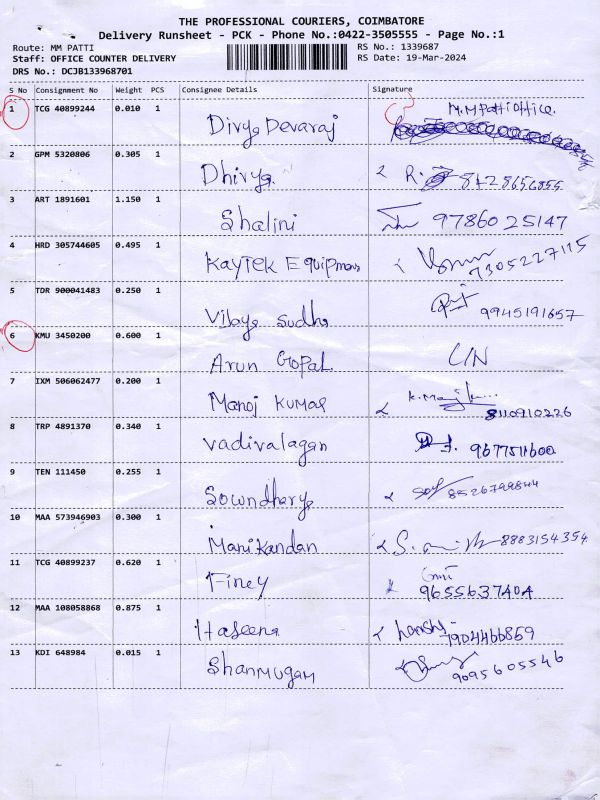 THE PROFESSIONAL COURIERS, COIMBATORE
Delivery Runsheet - PCK - Phone No.:0422-3505555 - Page No.:1
Route: MM PATTI RS No.: 1339687
Staff: OFFICE COUNTER DELIVERY RS Date: 19-Mar-2024
DRS No.: DCJB133968701
S No Consignment No Weight PCS Consignee Details Signature
1 TCG 40899244 0.010 1 Divya Devaraj M.M Patti Office.
2 GPM 5320806 0.305 1 Dhivya R. 8428656855
3 ART 1891601 1.150 1 Shalini 9786025147
4 HRD 305744605 0.495 1 Kaytek Equipmens 7305227115
5 TDR 900041483 0.250 1 Vilaya Sudha 9945191657
6 KMU 3450200 0.600 1 Arun Gopal
7 IXM 506062477 0.200 1 Manoj Kumar 8110910226
8 TRP 4891370 0.340 1 Vadivalagan 9677511600
9 TEN 111450 0.255 1 Sowndharya 8526799844
10 MAA 573946903 0.300 1 Manikandan 8883154354
11 TCG 40899237 0.620 1 Finey 9655637404
12 MAA 108058868 0.875 1 Haseena 7904466859
13 KDI 648984 0.015 1 Shanmugam 9095605546